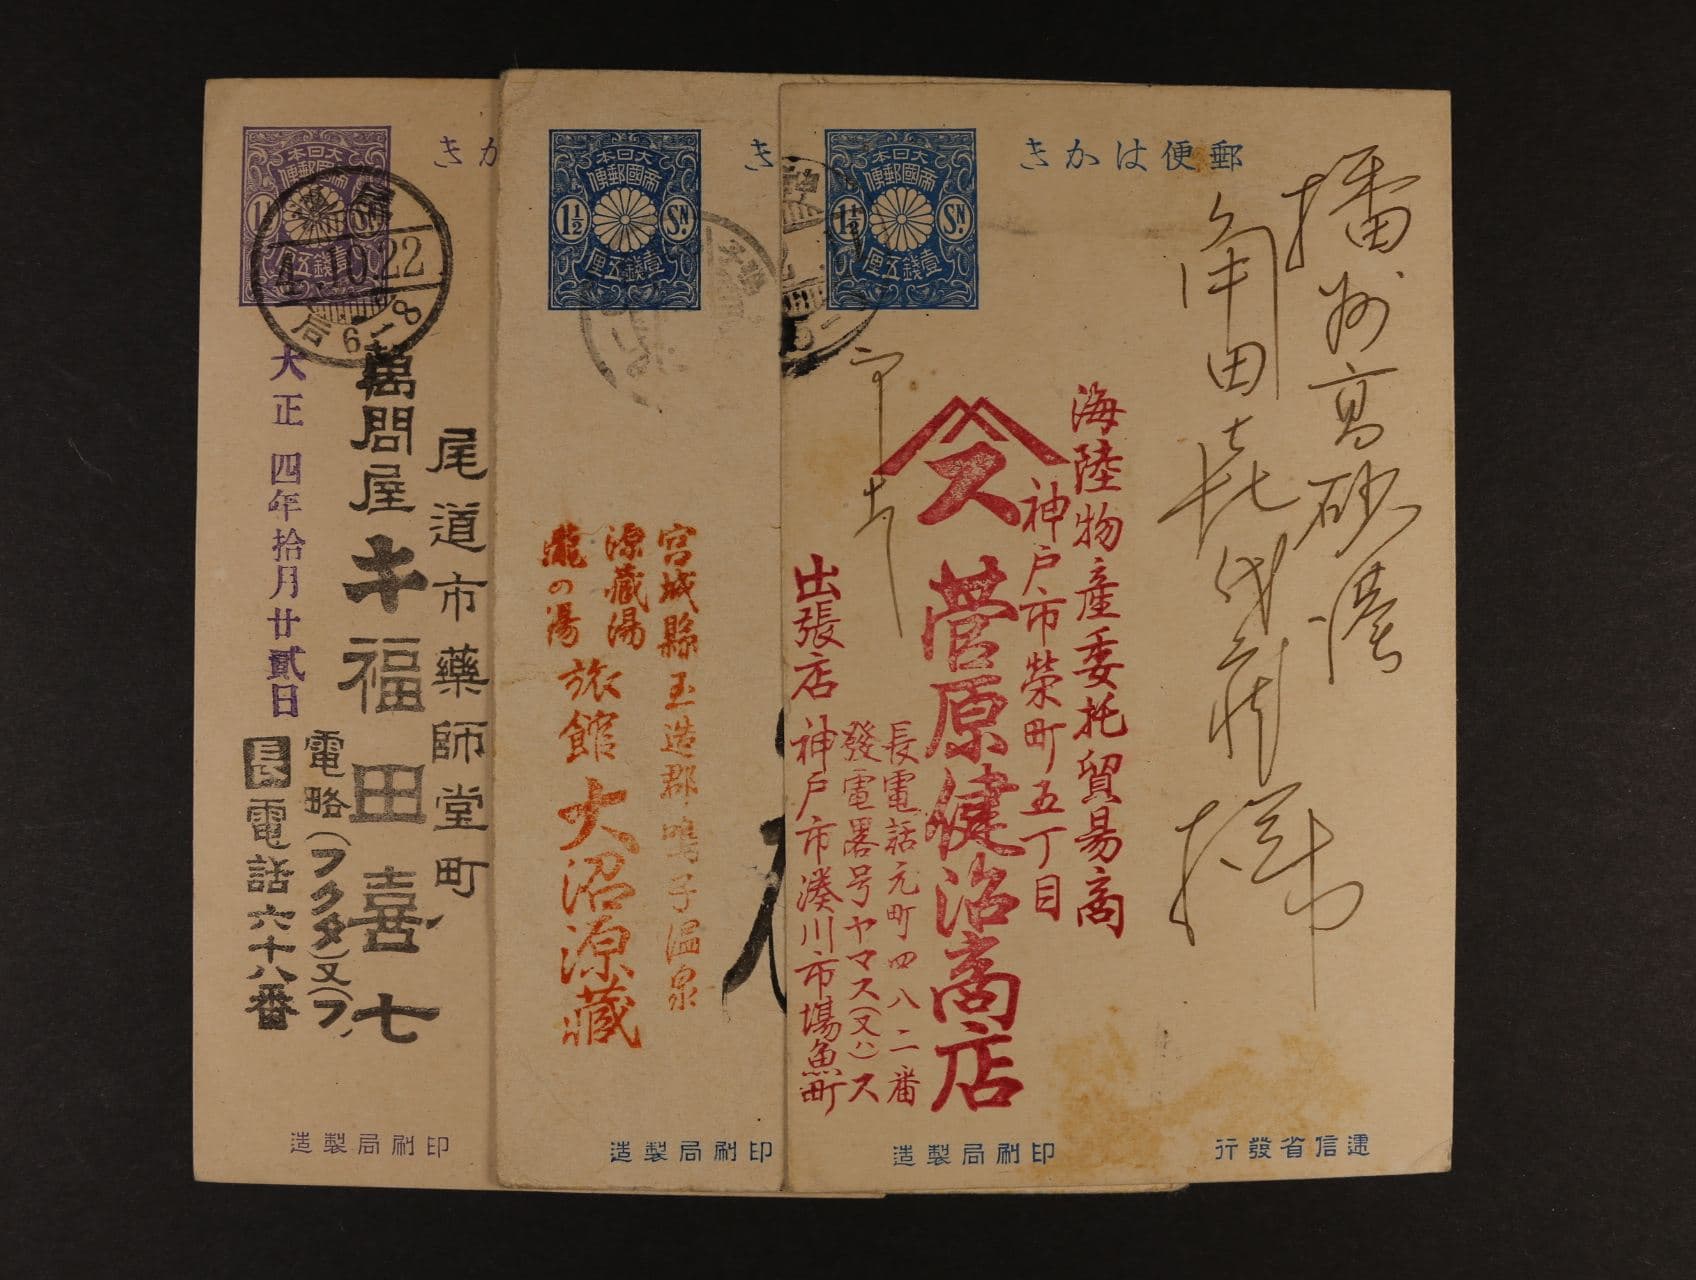 郵便はかき
大日本
帝國郵便
1½ SN.
壹錢五厘
播州高砂港
角田
海陸物産委托貿易商
神戸市榮町五丁目
ス
菅原健治商店
長電話元町四八二番
發電畧号ヤマス(又ハ)ス
出張店 神戸市湊川市場魚町
逓信省發行
印刷局製造
き
大日本
帝國郵便
1½ SN.
壹錢五厘
宮城縣玉造郡鳴子温泉
源藏湯
瀧の湯
旅館 大沼源藏
印刷局製造
かき
大日本
帝國郵便
壹錢五厘
4.10.22
6-8
局
尾道市藥師堂町
萬問屋 キ 福田喜七
電略(フクタ)又(フ)
長 電話六十八番
大正四年拾月廿貳日
印刷局製造